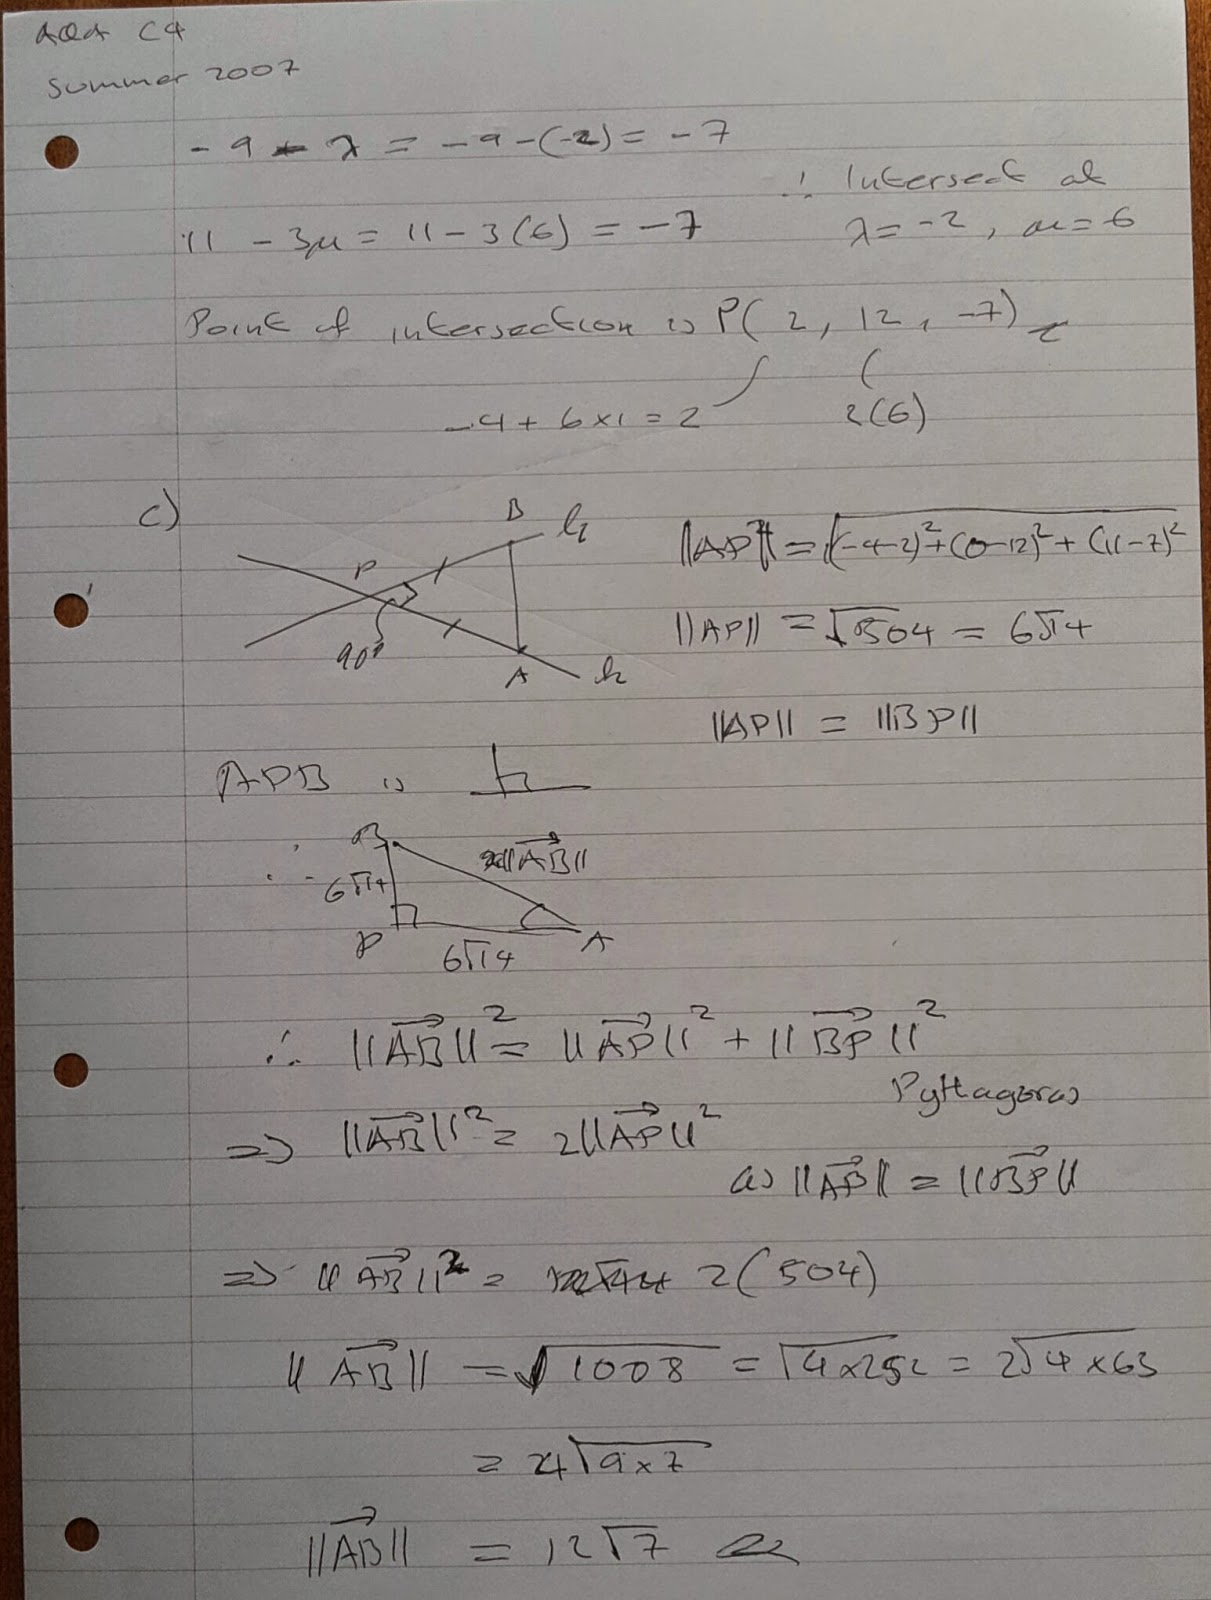 AQA C4
Summer 2007
-9 - λ = -9-(-2) = -7
∴ Intersect at
11 - 3μ = 11 - 3(6) = -7
λ = -2, μ = 6
Point of intersection is P(2, 12, -7)
-4 + 6×1 = 2
2(6)
c)
B l₂
P
90°
A l₁
||AP|| = √(-4-2)²+(0-12)²+(11--7)²
||AP|| = √504 = 6√14
||AP|| = ||BP||
APB is
∴
B
||AB||
6√14
P
6√14
A
∴ ||AB||² = ||AP||² + ||BP||²
Pythagoras
=> ||AB||² = 2||AP||²
as ||AP|| = ||BP||
=> ||AB||² = 2(504)
||AB|| = √1008 = √4×252 = 2√4×63
= 4√9×7
||AB|| = 12√7